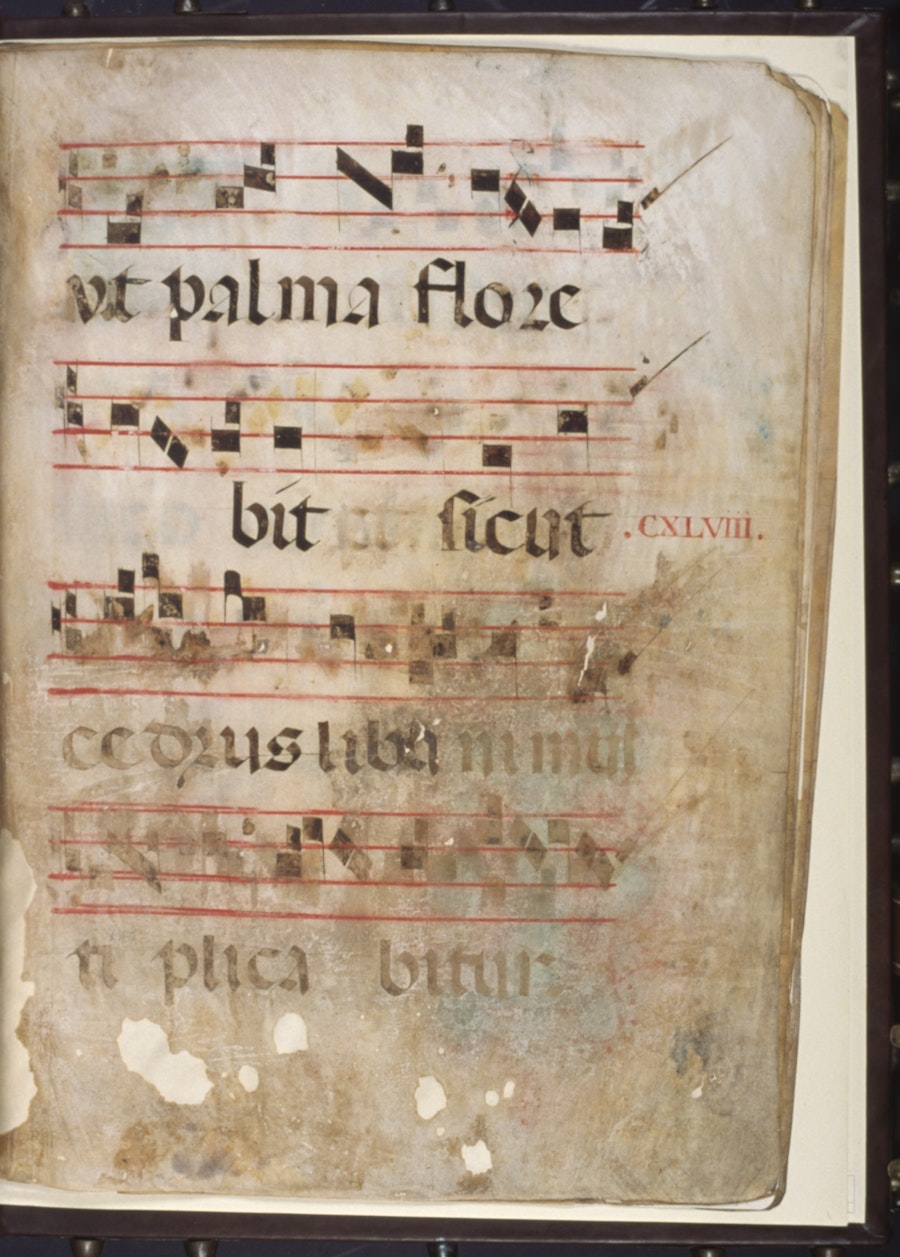 vt palma flore
bit sicut .CXLVIII.
cedrus libani mul
ti plica bitur.